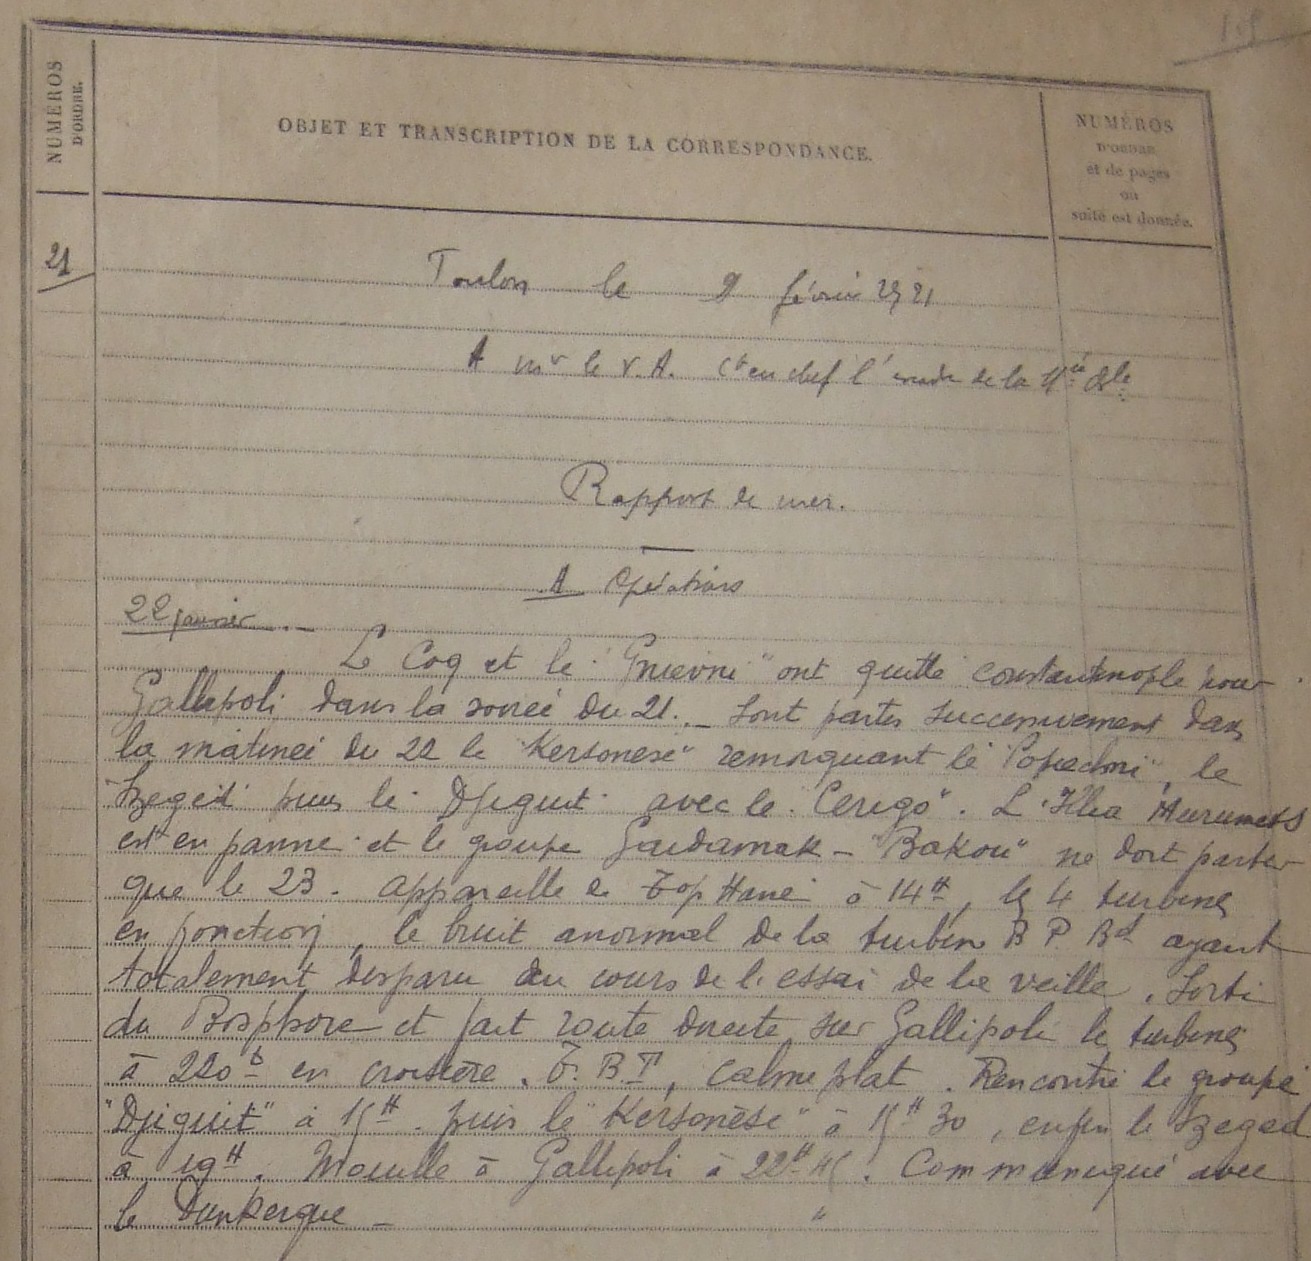 NUMÉROS
D'ORDRE.
OBJET ET TRANSCRIPTION DE LA CORRESPONDANCE.
NUMÉROS
D'ORDRE
et de pages
ou
suite est donnée.
21
Toulon le 9 février 1921
A Mr le V.A. Ct en chef l' de la
Rapport de mer.
A Opérations
22 janvier.-
Le Coq et le "Gnievni" ont quitté Constantinople pour
Gallipoli dans la soirée du 21.- Sont partis successivement dans
la matinée du 22 le "Kersonese" remorquant le , le
Szeged puis le Djiguit avec le "Cerigo". L'Ilia Muromets
est en panne et le groupe Gaidamak - "Bakou" ne doit partir
que le 23. Appareillé de Top Hané à 14H, les 4 turbines
en fonction, le bruit anormal de la turbine B P Bd ayant
totalement disparu au cours de l'essai de la veille. Sorti
du Bosphore et fait route directe sur Gallipoli les turbines
à 220 en croisière. T.B.T, calme plat. Rencontré le groupe
"Djiguit" à 15H. puis le "Kersonèse" à 15H 30, enfin le Szeged
à 19H. Mouillé à Gallipoli à 22H 45. Communiqué avec
le Dunkerque -